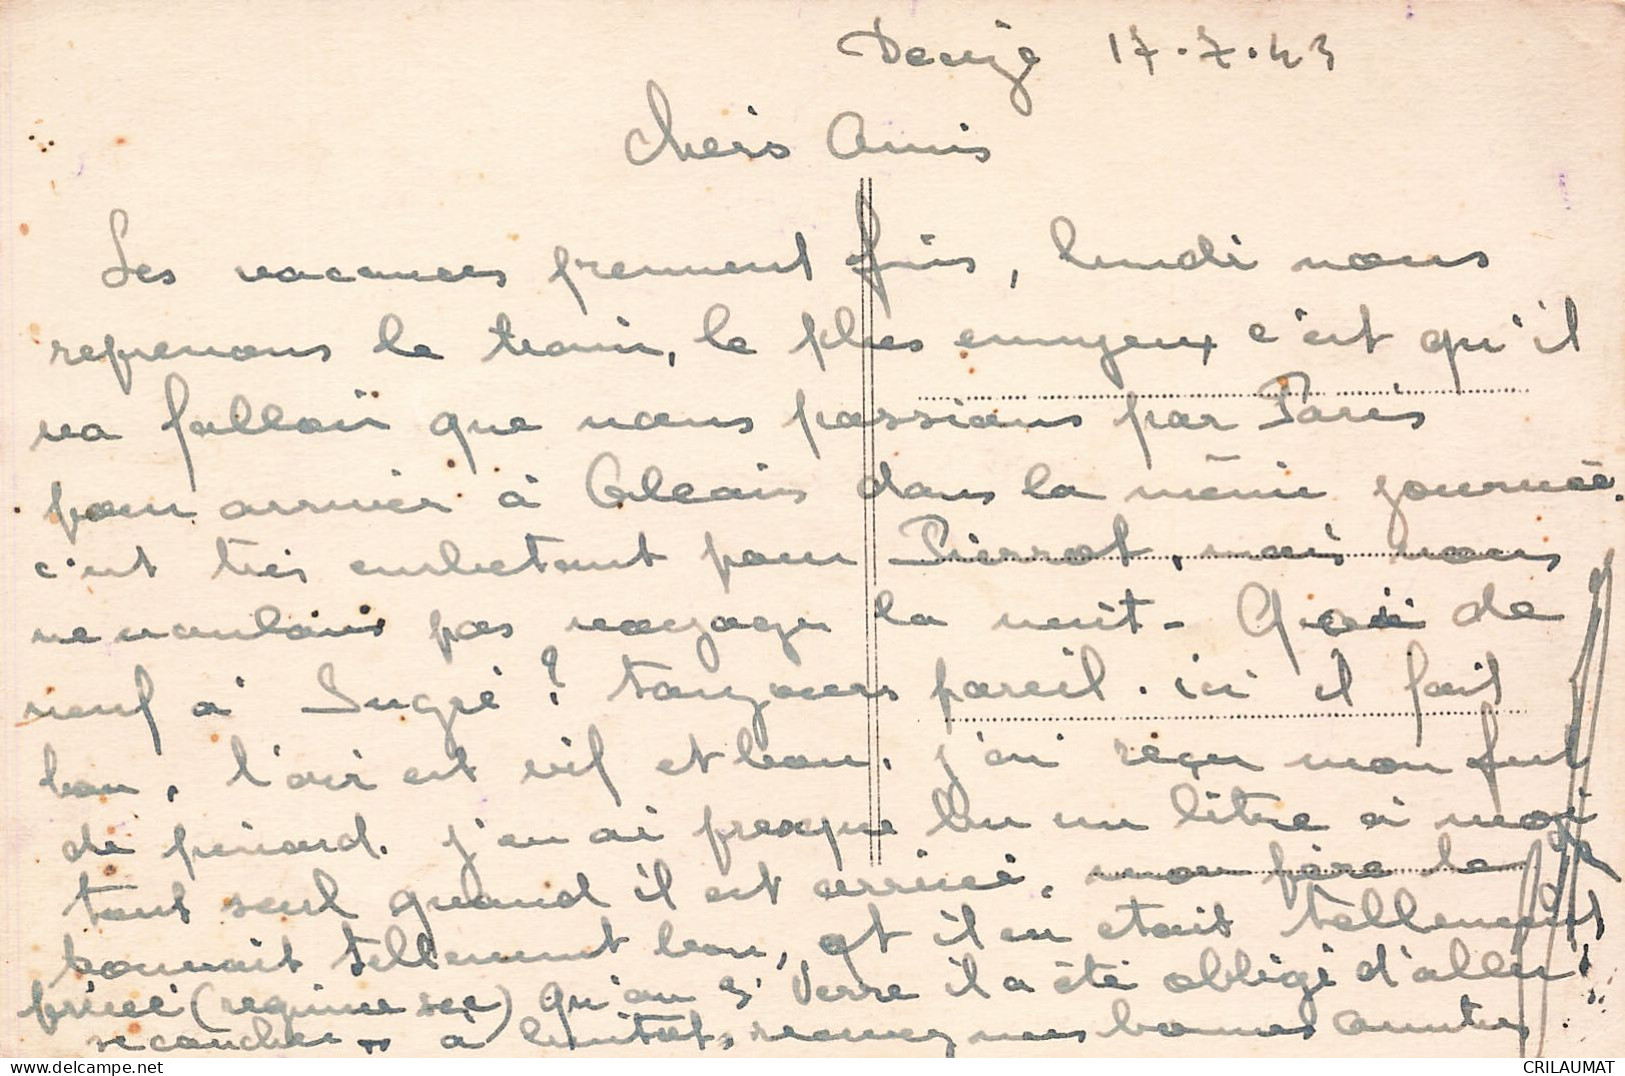 Decize 17.7.43
Chers Amis
Les vacances prennent fin, lundi nous
reprenons le train, le plus ennuyeux c'est qu'il
va falloir que nous passions par Paris
pour arriver à Orléans dans la même journée.
c'est très embêtant pour Pierrot, mais nous
ne voulons pas voyager la nuit - Quoi de
neuf à Sugré ? toujours pareil. ici il fait
bon, l'air est vif et bon. j'ai reçu mon fut
de pinard. j'en ai presque bu un litre à moi
tout seul quand il est arrivé, mon père le
trouvait tellement bon, et il en était tellement
privé (régime sec) qu'au 3e Verre il a été obligé d'aller
se coucher - à bientôt, recevez nos bonnes amitiés
CRILAUMAT